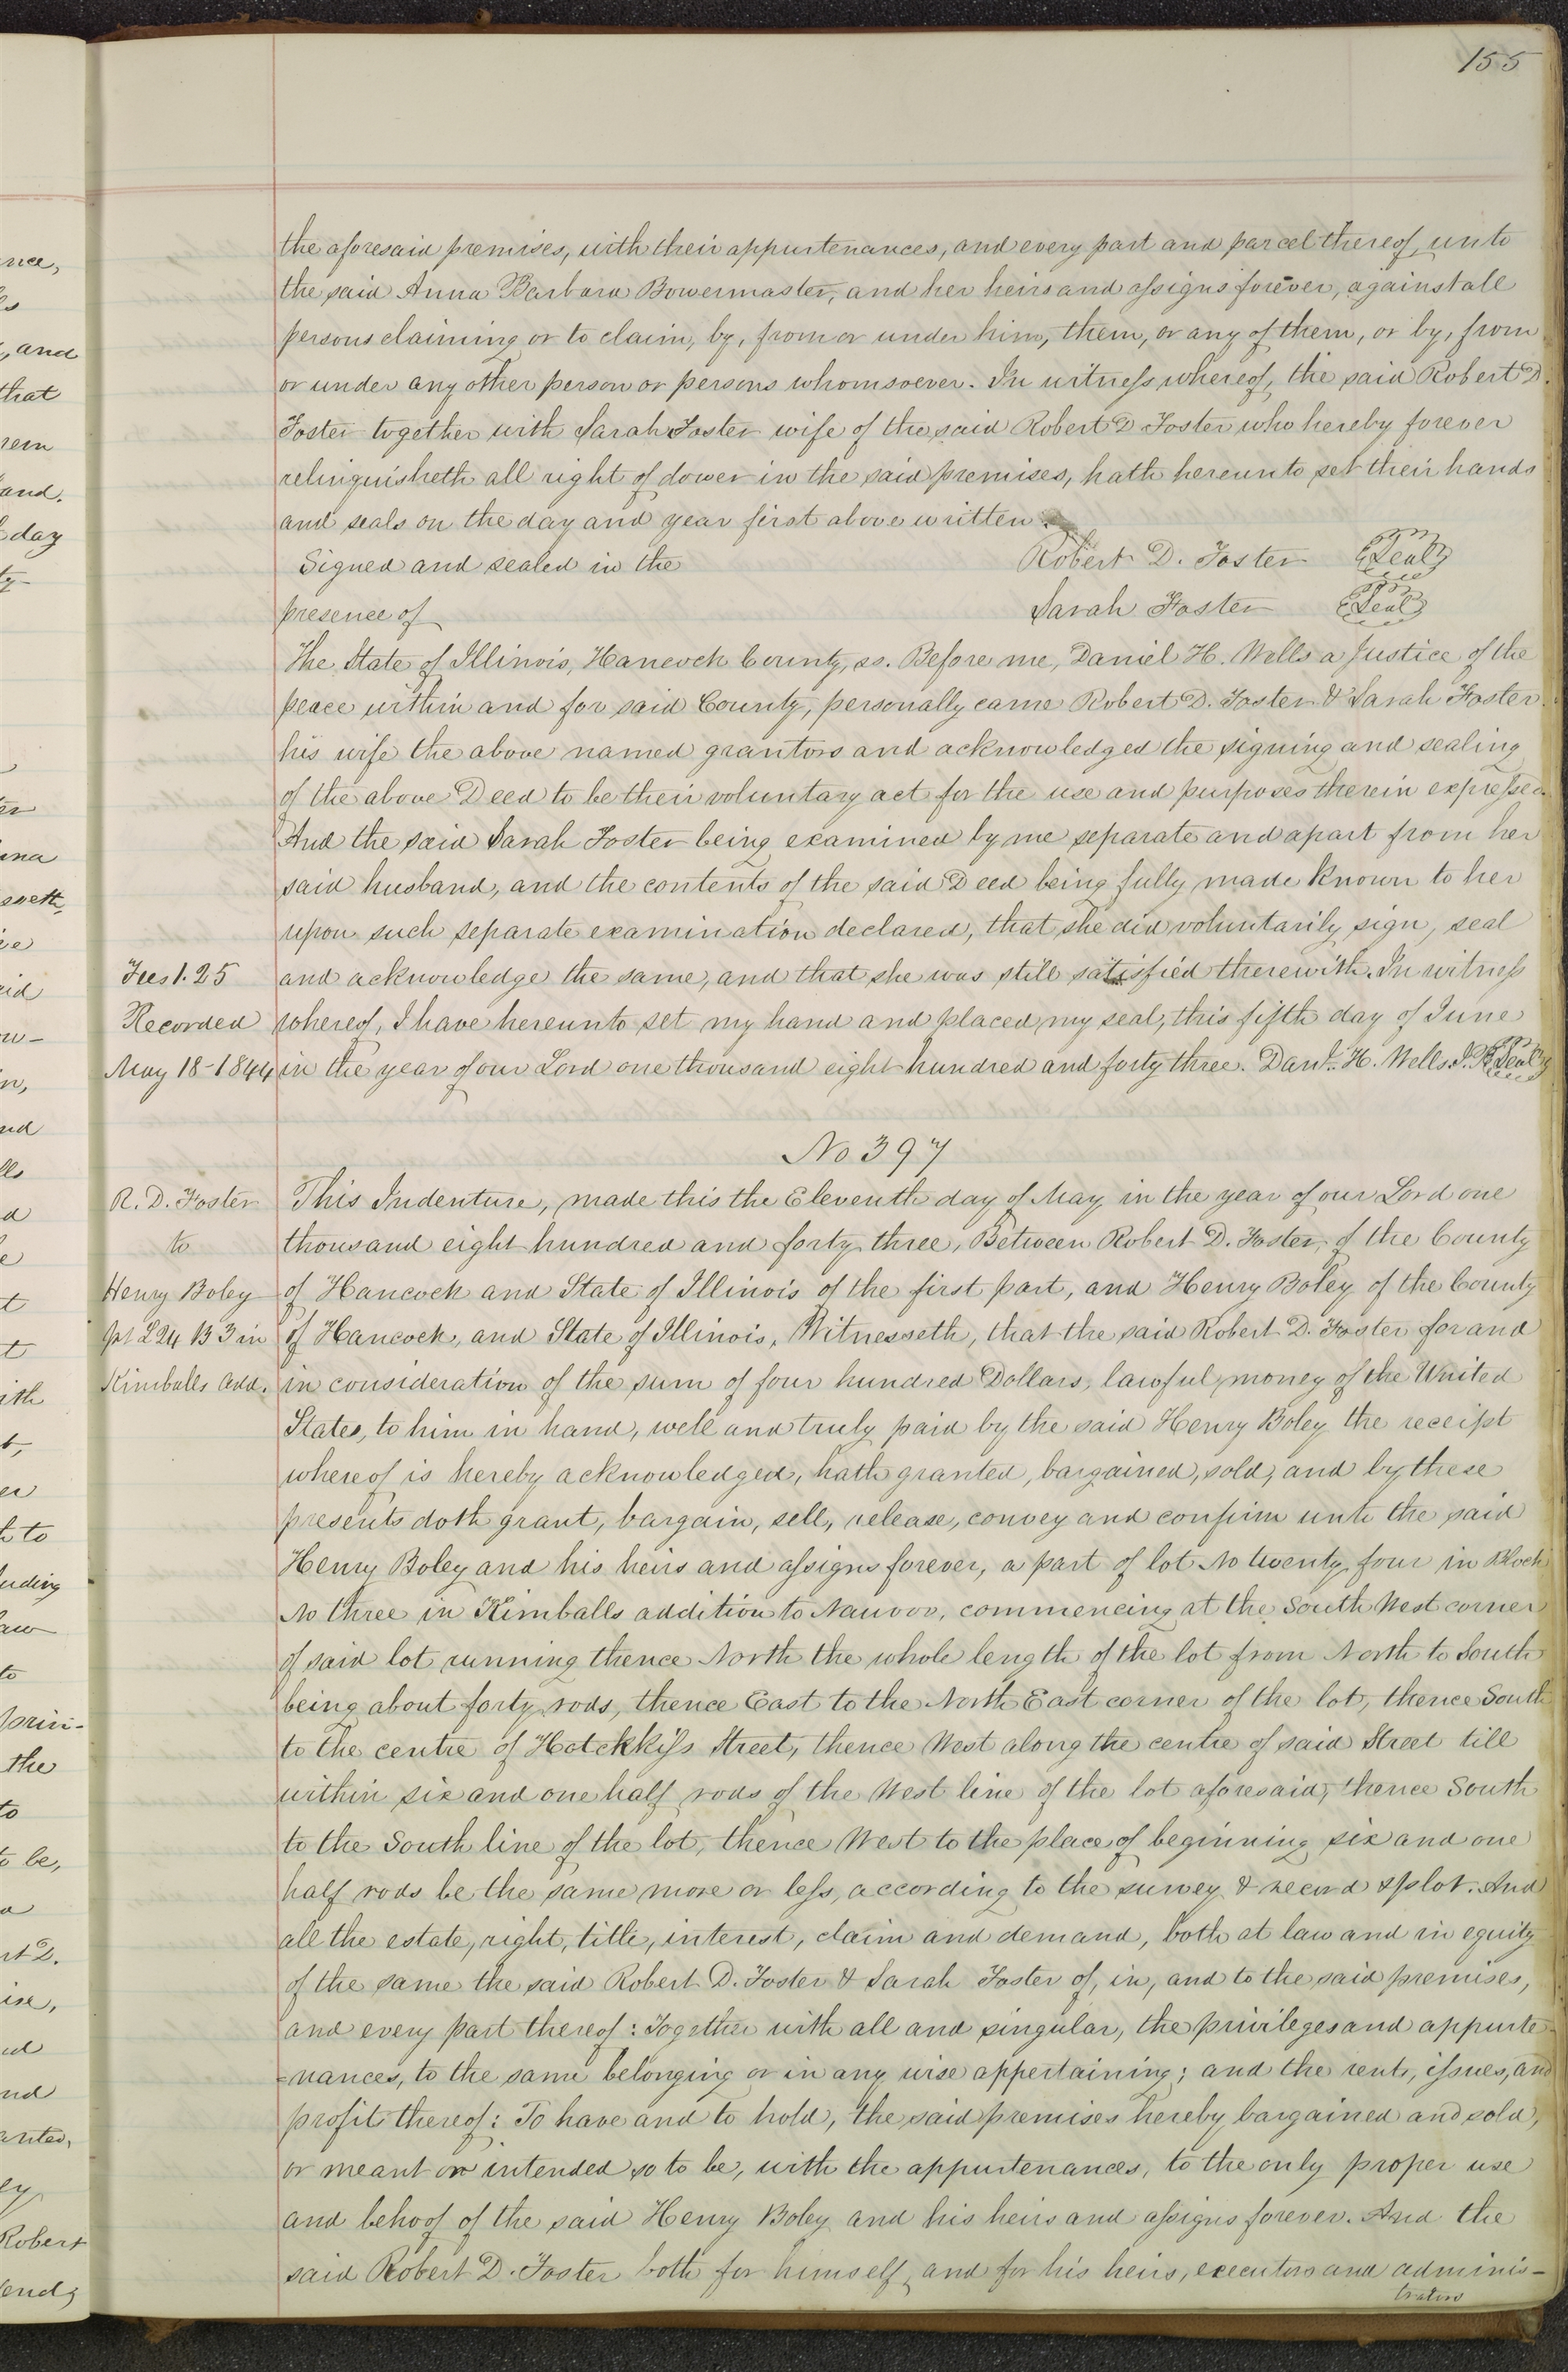 155
the aforesaid premises, with their appurtenances, and every part and parcel thereof, unto
the said Anna Barbara Bowermaster, and her heirs and assigns forever, against all
persons claiming or to claim, by, from or under him, them, or any of them, or by, from
or under any other person or persons whomsoever. In witness whereof, the said Robert D.
Foster together with Sarah Foster wife of the said Robert D Foster who hereby forever
relinquisheth all right of dower in the said premises, hath hereunto set their hands
and seals on the day and year first above written.
Signed and sealed in the Robert D. Foster Seal
presence of Sarah Foster Seal
The State of Illinois, Hancock County, ss. Before me, Daniel H. Wells a Justice of the
peace within and for said County, personally came Robert D. Foster & Sarah Foster
his wife the above named grantors and acknowledged the signing and sealing
of the above Deed to be their voluntary act for the use and purposes therein expressed.
And the said Sarah Foster being examined by me separate and apart from her
said husband, and the contents of the said Deed being fully made known to her
upon such separate examination declared, that she did voluntarily sign, seal
Fees 1.25 and acknowledge the same, and that she was still satisfied therewith. In witness
Recorded whereof, I have hereunto set my hand and placed my seal, this fifth day of June
May 18-1844 in the year of our Lord one thousand eight hundred and forty three. Danl. H. Wells J.P. Seal
No 397
R. D. Foster This Indenture, made this the Eleventh day of May in the year of our Lord one
to thousand eight hundred and forty three, Between Robert D. Foster, of the County
Henry Boley of Hancock and State of Illinois of the first part, and Henry Boley of the County
Pt L 24 B 3 in of Hancock, and State of Illinois, Witnesseth, that the said Robert D. Foster for and
Kimballs Add. in consideration of the sum of four hundred Dollars, lawful money of the United
States, to him in hand, well and truly paid by the said Henry Boley the receipt
whereof is hereby acknowledged, hath granted, bargained, sold, and by these
presents doth grant, bargain, sell, release, convey and confirm unto the said
Henry Boley and his heirs and assigns forever, a part of lot No twenty four in Block
No three in Kimballs addition to Nauvoo, commencing at the South West corner
of said lot running thence North the whole length of the lot from North to South
being about forty rods, thence East to the North East corner of the lot, thence South
to the centre of Hotckkiss Street, thence West along the centre of said Street till
within six and one half rods of the West line of the lot aforesaid, thence South
to the South line of the lot, thence West to the place of beginning six and one
half rods be the same more or less, according to the survey & record & plot. And
all the estate, right, title, interest, claim and demand, both at law and in equity
of the same the said Robert D. Foster & Sarah Foster of, in, and to the said premises,
and every part thereof: Together with all and singular, the privileges and appurte-
=nances, to the same belonging or in any wise appertaining; and the rents, issues, and
profit thereof: To have and to hold, the said premises hereby bargained and sold,
or meant or intended so to be, with the appurtenances, to the only proper use
and behoof of the said Henry Boley and his heirs and assigns forever. And the
said Robert D. Foster both for himself, and for his heirs, executors and adminis-
trators